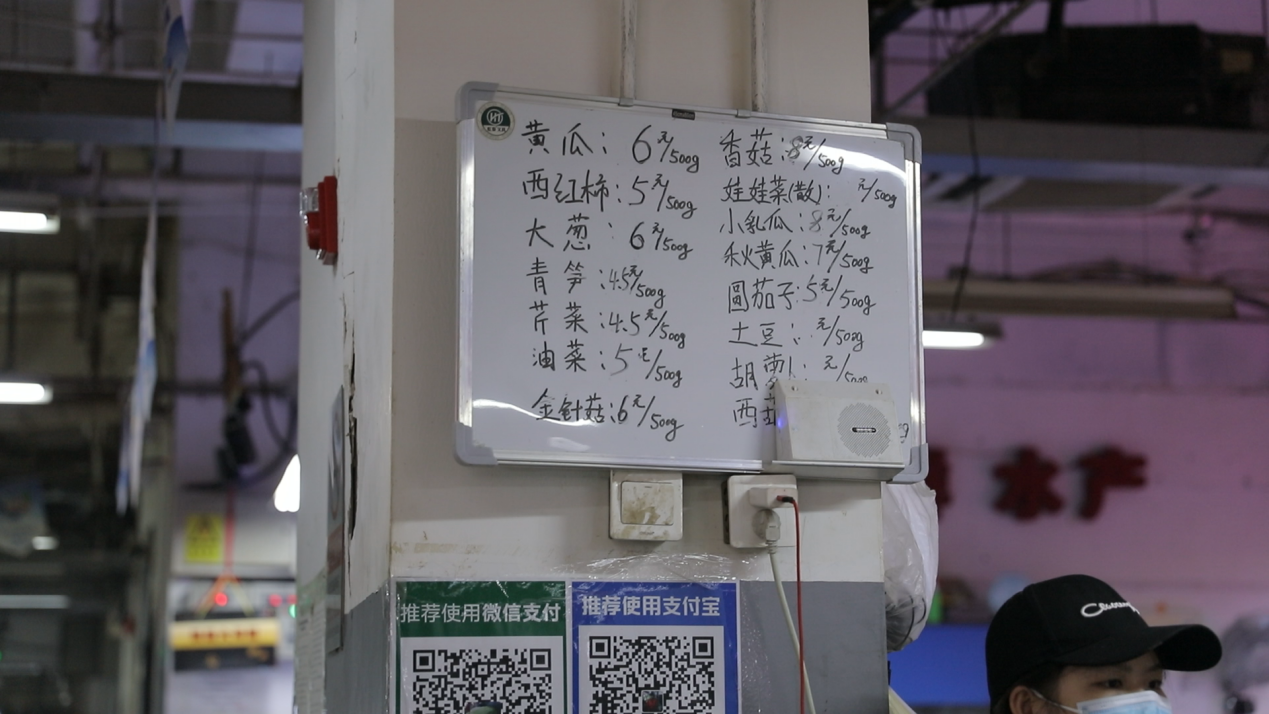 黄瓜：6元/500g
西红柿：5元/500g
大葱：6元/500g
青笋：4.5元/500g
芹菜：4.5元/500g
油菜：5元/500g
金针菇：6元/500g
香菇：8元/500g
娃娃菜(散)：元/500g
小乳瓜：8元/500g
秋黄瓜：7元/500g
圆茄子：5元/500g
土豆：元/500g
胡萝卜：元/500g
西
推荐使用微信支付
推荐使用支付宝
水产